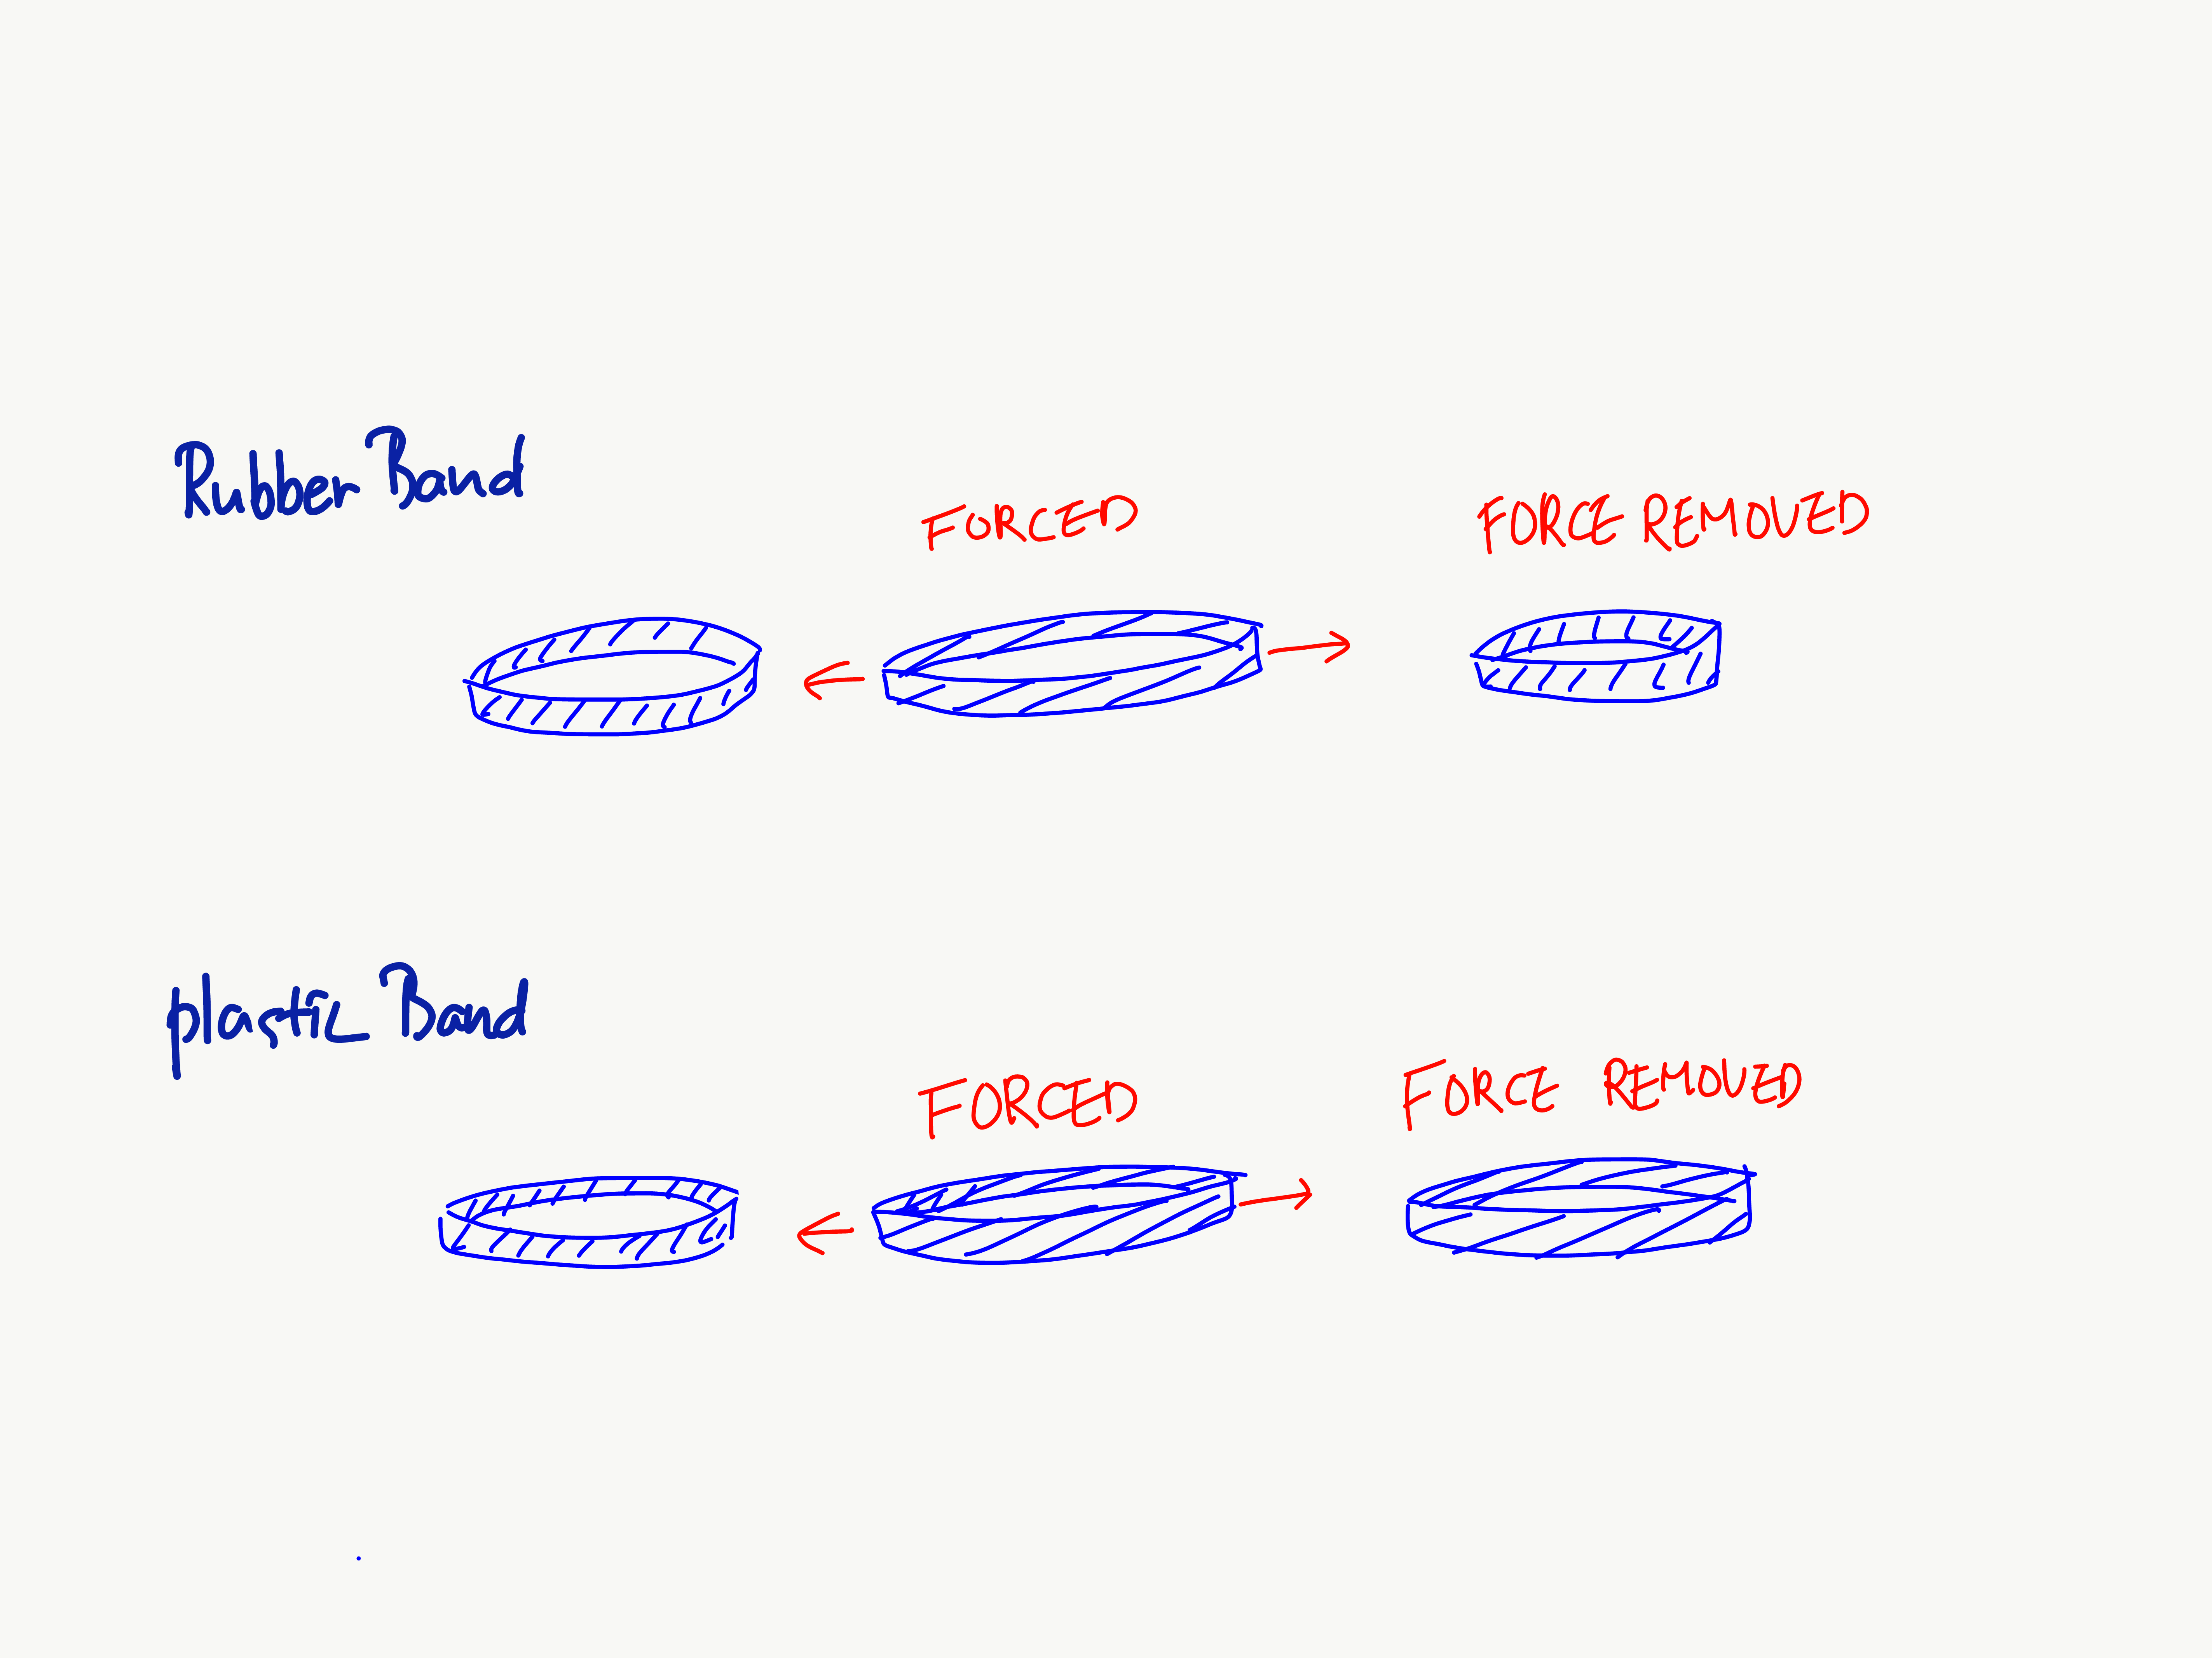 Rubber Band
FORCED
FORCE REMOVED
plastic Band
FORCED
FORCE REMOVED